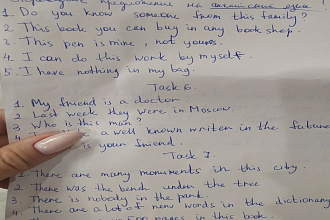 предложение на английский язык
1. Do you know someone from this family?
2. This book you can buy in any book shop.
3. This pen is mine, not yours.
4. I can do this work by myself.
5. I have nothing in my bag.
Task 6.
1. My friend is a doctor
2 Last week they were in Moscow.
3. Who is this man?
a well known writer in the future
is your friend.
Task 7.
1. There are many monuments in this city.
2. There was the bench under the tree
3 There is nobody in the park
4. There are a lot of new words in the dictionary
pages in this book.